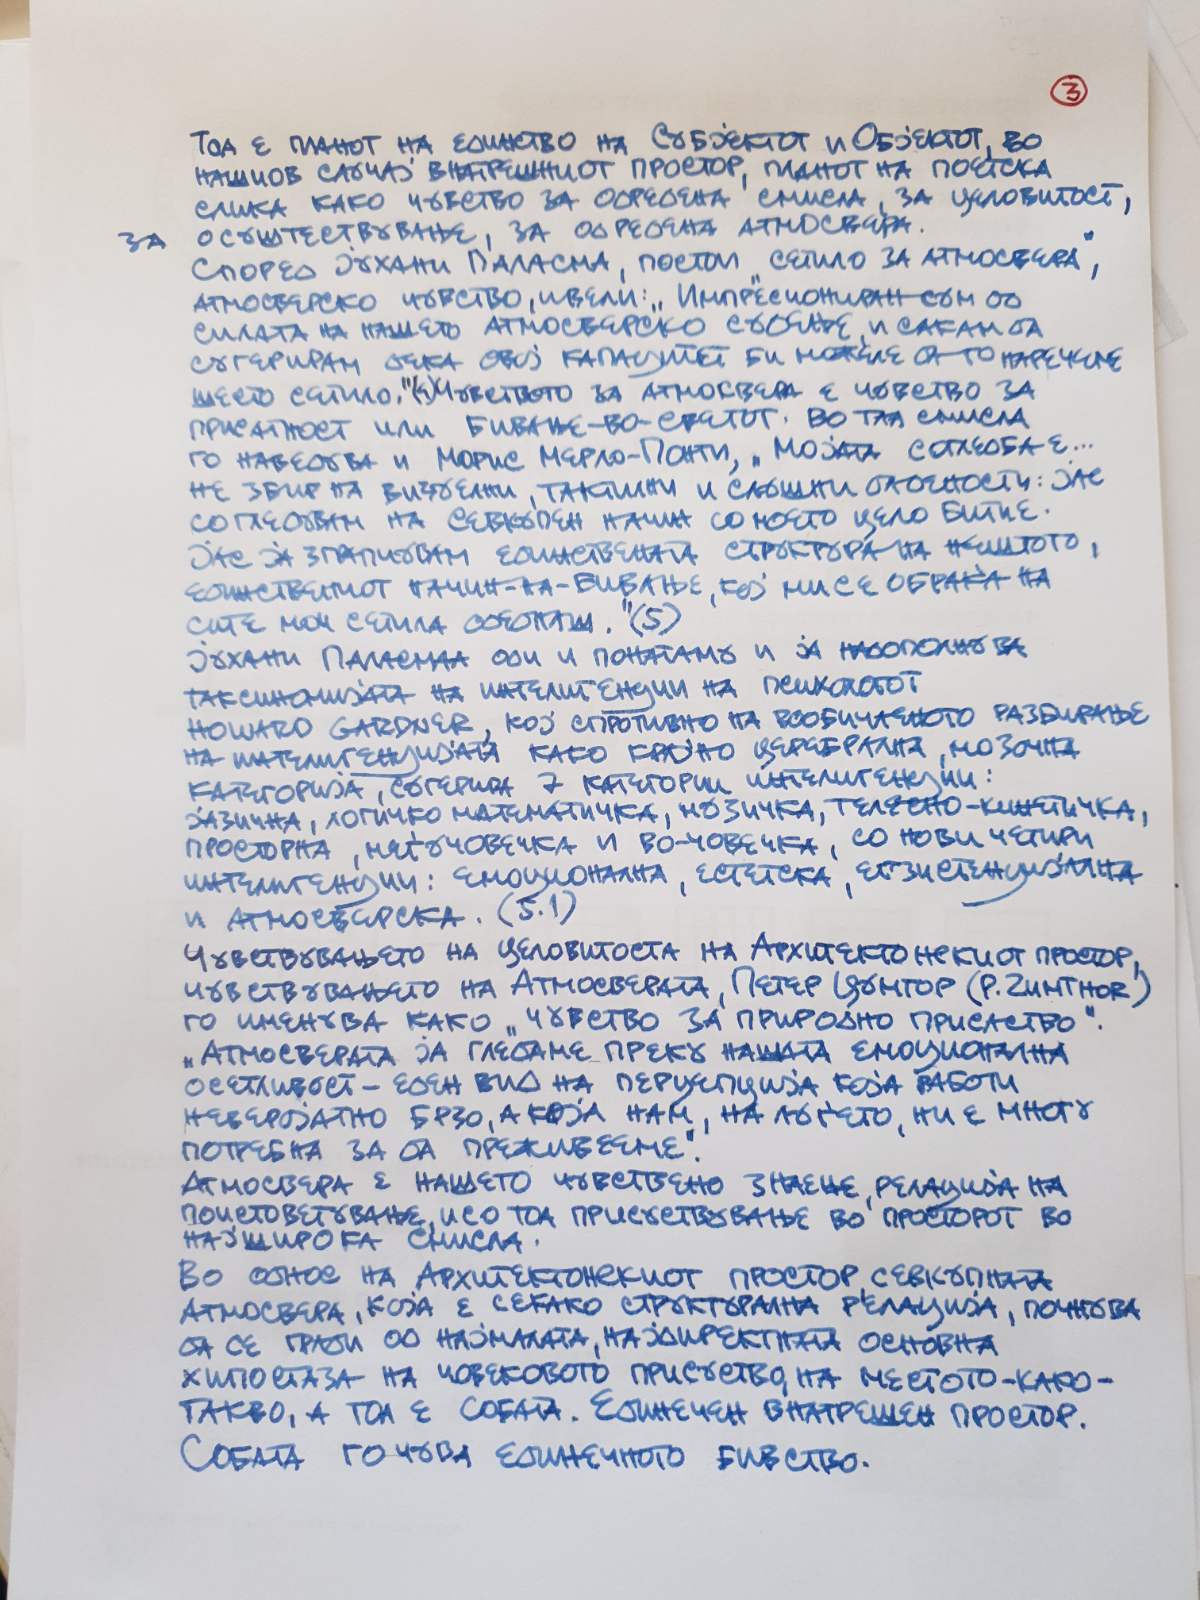 3
Тоа е планот на единство на Субјектот и Објектот, во
нашиов случај внатрешниот простор, планот на поетска
слика како чувство за одредена смисла, за целовитост,
за осуштествување, за одредена атмосвера.
Според Јухани Паласма, постои „сетило за атмосвера",
атмосверско чувство, и вели: „Импресиониран сум од
силата на нашето атмосверско судење, и сакам да
сугерирам дека овој капацитет би можеле да го наречеме
шесто сетило."(4) Чувството за атмосвера е чувство за
присатност или Бивање-во-светот. Во таа смисла
го наведува и Морис Мерло-Понти, „Мојата согледба е...
не збир на визуелни, тактилни и слушни дадености: јас
согледувам на севкупен начин со моето цело Битие.
Јас ја зграпчувам единствената структура на нештото,
единствениот начин-на-бивање, кој ми се обраќа на
сите мои сетила одеднаш."(5)
Јухани Паласмаа оди и понатаму и ја надополнува
таксиномијата на интелигенции на психологот
HOWARD GARDNER, кој спротивно на вообичаеното разбирање
на интелигенцијата како крајно церебрална, мозочна
категорија, сугерира 7 категории интелигенции:
јазична, логичко математичка, музичка, телесно-кинетичка,
просторна, меѓучовечка и во-човечка, со нови четири
интелигенции: емоционална, естетска, егзистенцијална
и атмосверска. (5.1)
Чувствувањето на целовитоста на Архитектонскиот простор,
чувствувањето на Атмосверата, Петер Цумтор (P. ZUMTHOR)
го именува како „чувство за природно присаство".
„Атмосверата ја гледаме преку нашата емоционална
осетливост – еден вид на перцепција која работи
неверојатно брзо, а која нам, на луѓето, ни е многу
потребна за да преживееме".
Атмосвера е нашето чувствено знаење, релација на
поистоветување, и со тоа присуствување во просторот во
најширока смисла.
Во однос на Архитектонскиот простор севкупната
атмосвера, која е секако структурална релација, почнува
да се гради од најмалата, најдиректната основна
хипостаза на човековото присуство, на местото-како-
такво, а тоа е Собата. Единечен внатрешен простор.
Собата го чува единечното бивство.